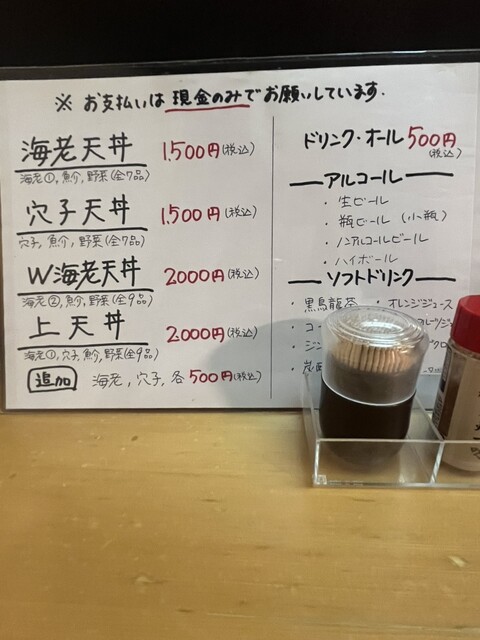 ※ お支払いは 現金のみでお願いしています.
海老天丼 1.500円(税込)
海老①,魚介,野菜(全7品)
穴子天丼 1.500円(税込)
穴子,魚介,野菜(全7品)
W海老天丼 2000円(税込)
海老②,魚介,野菜(全9品)
上天丼 2.000円(税込)
海老①,穴子,魚介,野菜(全9品)
追加 海老,穴子,各500円(税込)
ドリンク・オール500円
(税込)
アルコール
・生ビール
・瓶ビール (小瓶)
・ノンアルコールビール
・ハイボール
ソフトドリンク
・黒烏龍茶 ・オレンジジュース
・コー
・ジン